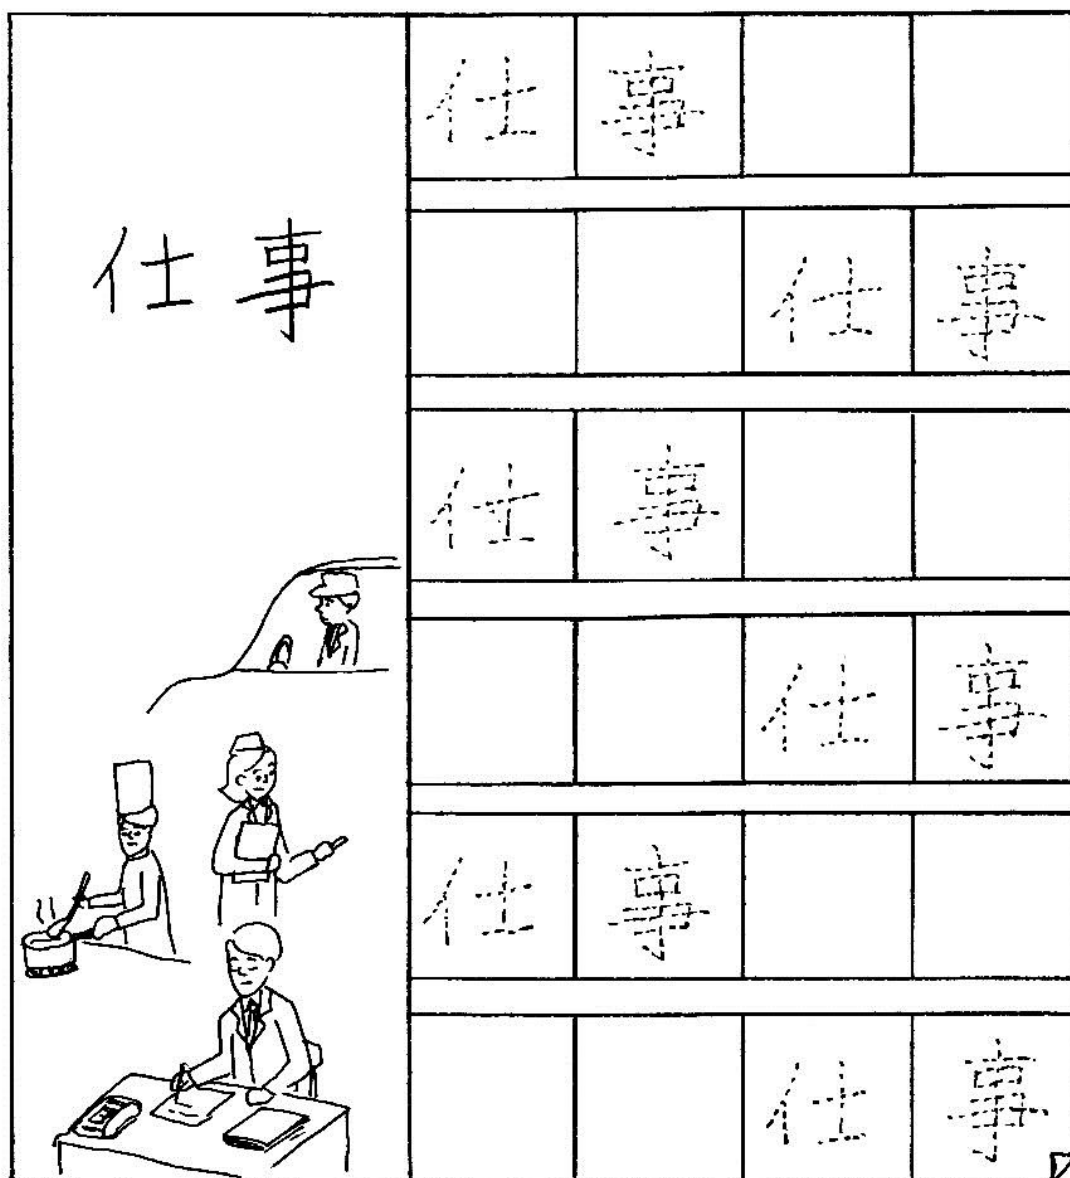 仕事
仕事
仕事
仕事
仕事
仕事
仕事